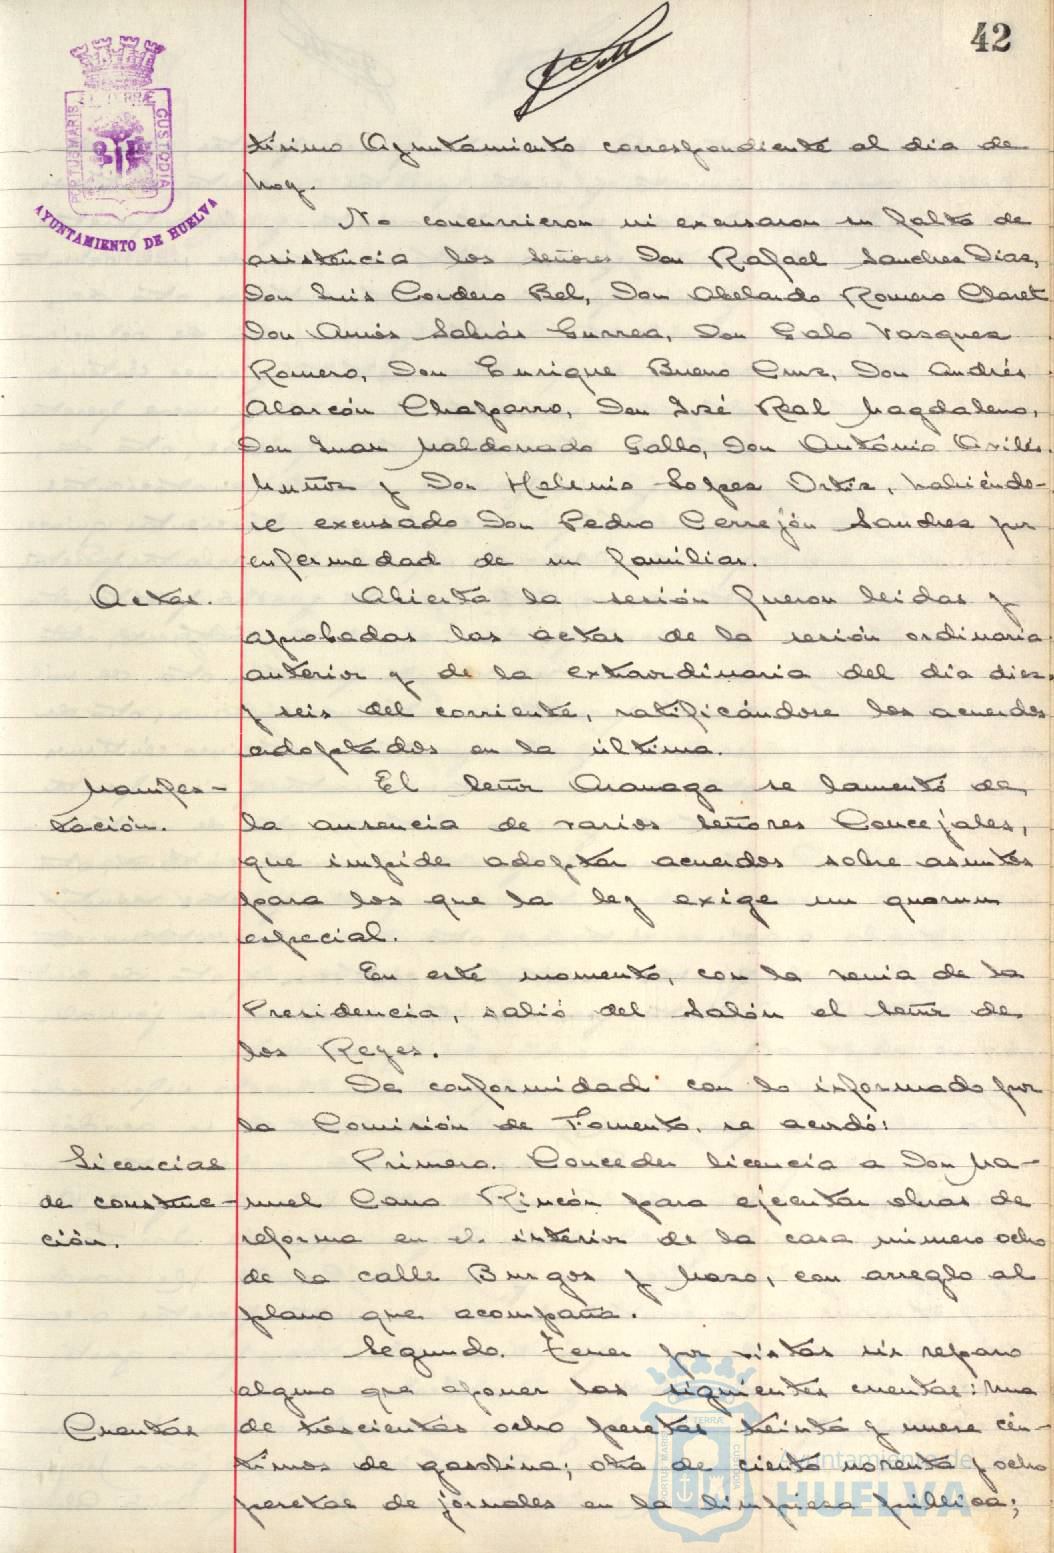 42
PORTUS MARIS
TERRÆ
CUSTODIA
AYUNTAMIENTO DE HUELVA
tísimo Ayuntamiento correspondiente al día de
hoy.
No concurrieron ni excusaron su falta de
asistencia los señores Don Rafael Sanchez Diaz,
Don Luis Cordero Bel, Don Abelardo Romero Claret
Don Amós Sabrás Gurrea, Don Galo Vazquez
Romero, Don Enrique Bueno Cruz, Don Andrés
Alarcón Chaparro, Don José Real Magdaleno,
Don Juan Maldonado Gallo, Don António
Muñoz y Don Melenio Lopez Ortiz, habiéndo-
se excusado Don Pedro Cerrejón Sanchez por
enfermedad de un familiar.
Actas.
Abierta la sesión fueron leidas y
aprobadas las actas de la sesión ordinaria
anterior y de la extraordinaria del día diez
y seis del corriente, ratificándose los acuerdos
adoptados en la última.
Manifes-
tación.
El Señor se lamentó de
la ausencia de varios señores Concejales,
que impide adoptar acuerdos sobre asuntos
para los que la ley exige un quorum
especial.
En este momento, con la venia de la
Presidencia, salió del Salón el Señor de
los Reyes.
De conformidad con lo informado por
la Comisión de Fomento, se acordó:
Licencias
de construc-
ción.
Primero. Conceder licencia a Don Ma-
nuel Cano Rincón para ejecutar obras de
reforma en el interior de la casa número ocho
de la calle Burgos y Mazo, con arreglo al
plano que acompaña.
Segundo. Tener por vistas sin reparo
alguno que oponer las siguientes cuentas: una
Cuentas
de trescientas ocho pesetas treinta y nueve cén-
timos de gasolina; otra de ciento noventa y ocho
pesetas de jornales en la limpieza pública;
Ayuntamiento de
HUELVA